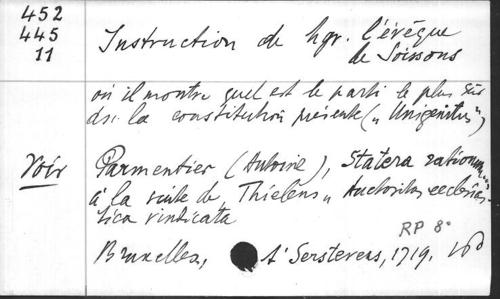 452
445
11
Instruction de hgr. l'évêque
de Soissons
où il montre quel est le parti le plus sûr
ds. la constitution présente („ Unigenitus"),
Voir Parmentier (Antoine), Statera rationum"
à la suite de Thielens „ Auctoritas ecclesias-
tica vindicata
RP 8°
Bruxelles, t'Serstevens, 1719.